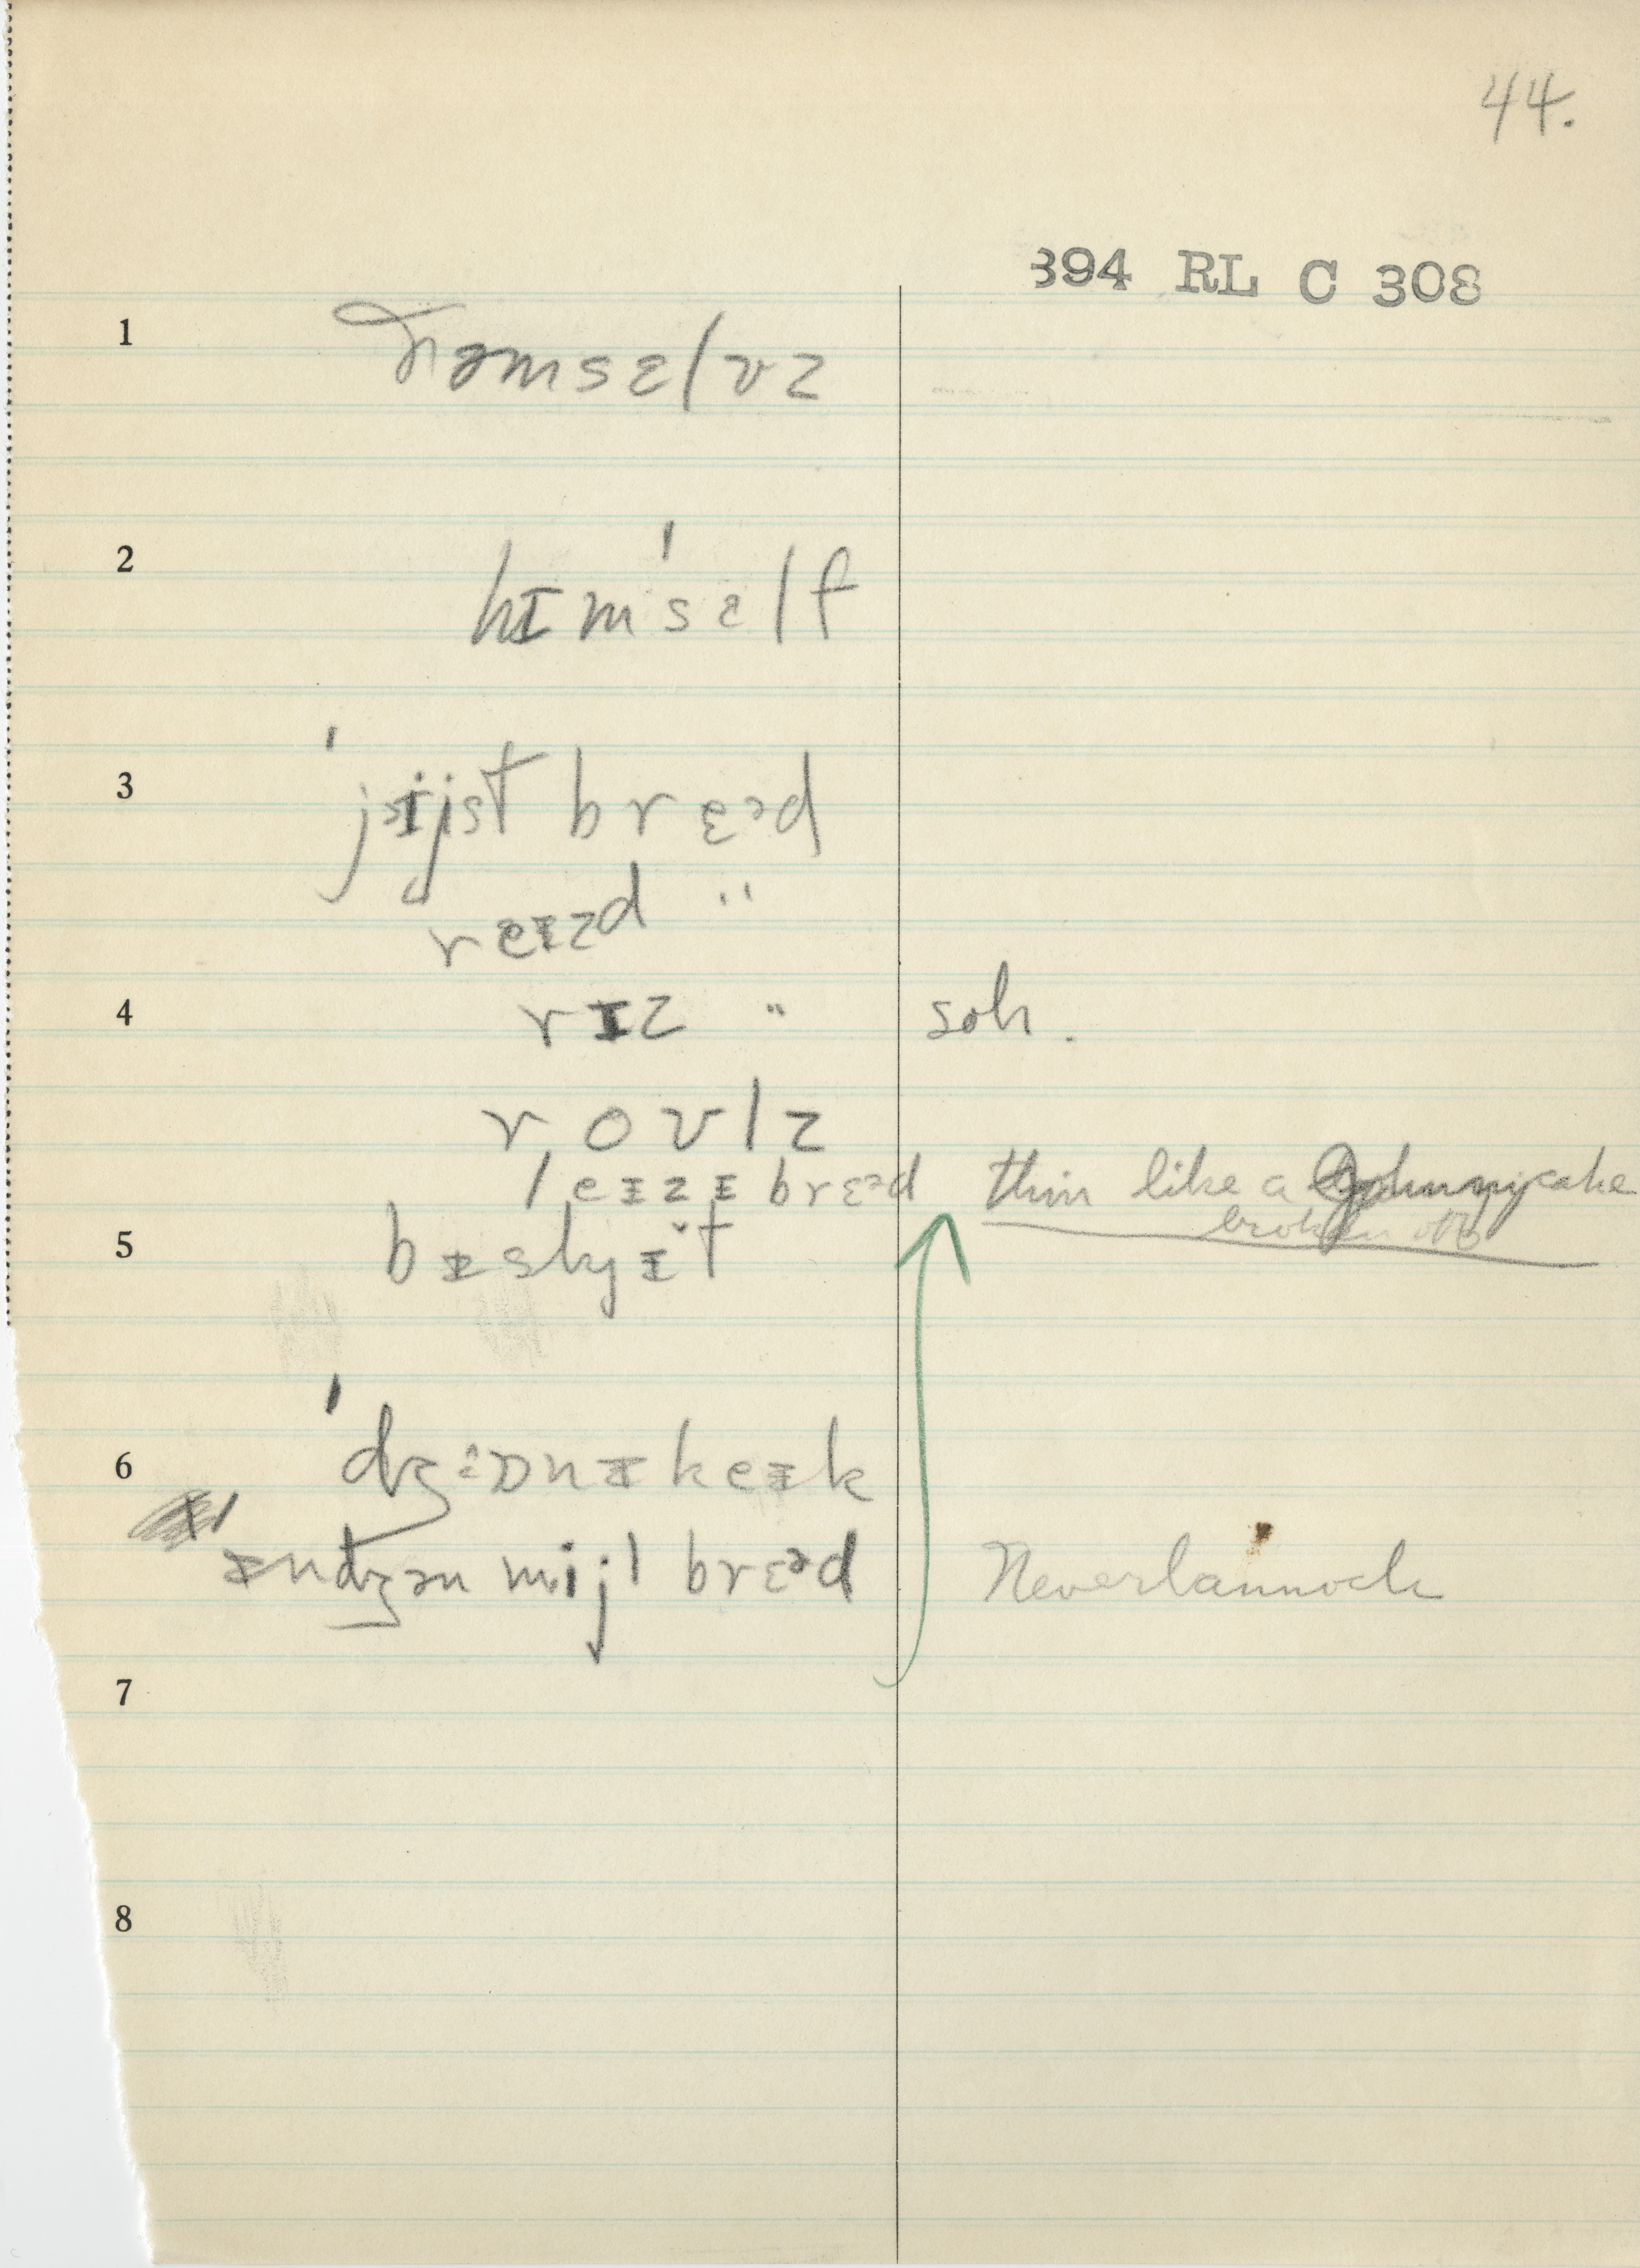 44.
394 RL C 308
1 ðəmsɛlvz
2 hɪm'sɛlf
3 'jijst brɛᵊd
reɪzd "
4 rɪz " soh.
rovlz
leɪzɪ brɛᵊd thin like a Johnnycake
broken off
5 bɪskyɪ̆t
6 'dʒɒnɪkeɪk
'ɪndʒən mijl brɛᵊd Neverlannock
7
8